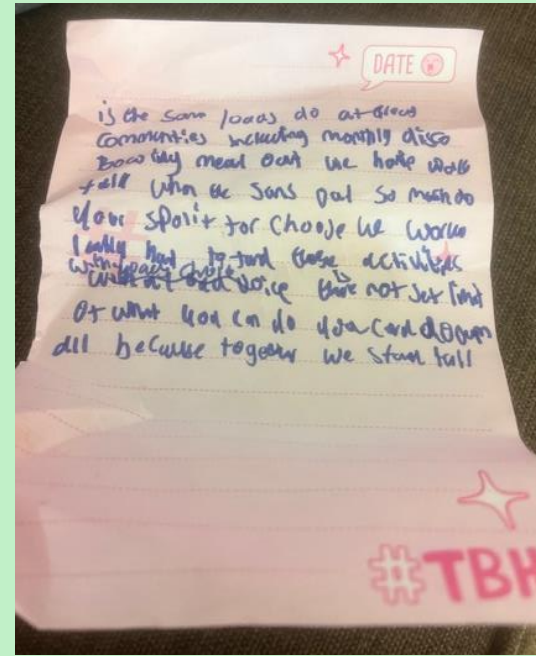 DATE
is the sam loads do at
Communities including monthly disco
meal out we have walk
tall when the sans out so much do
your spolit for choose we works
really hard to fund these activities
with choice there not Jet limit
of what you can do you can do
all because together we stan tall
#TBH